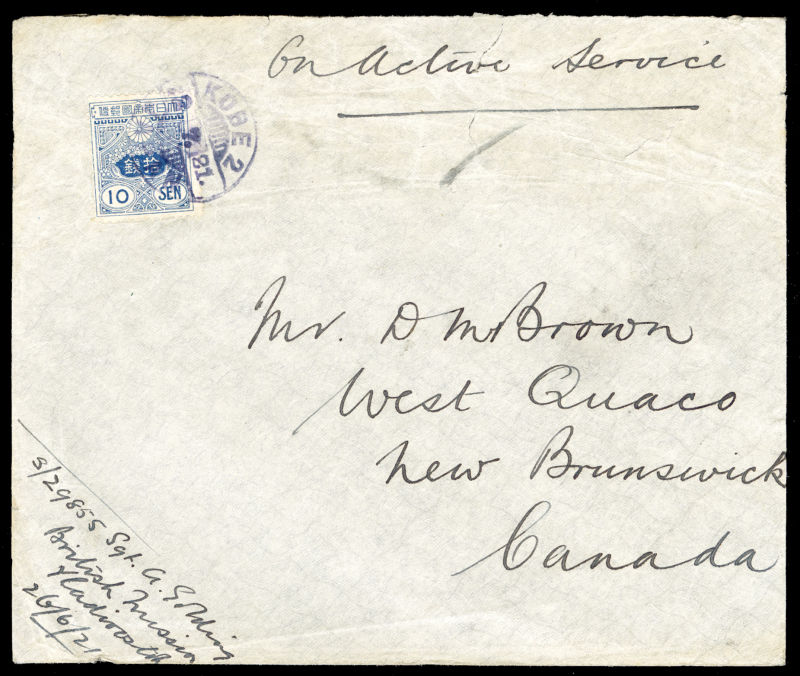 On Active Service
大日本帝國郵便
拾銭
10 SEN
KOBE 2
Mr. D McBrown
West Quaco
New Brunswick
Canada
S/29855 Sgt. G. Golding
British Mission
Vladivostok
26/6/21